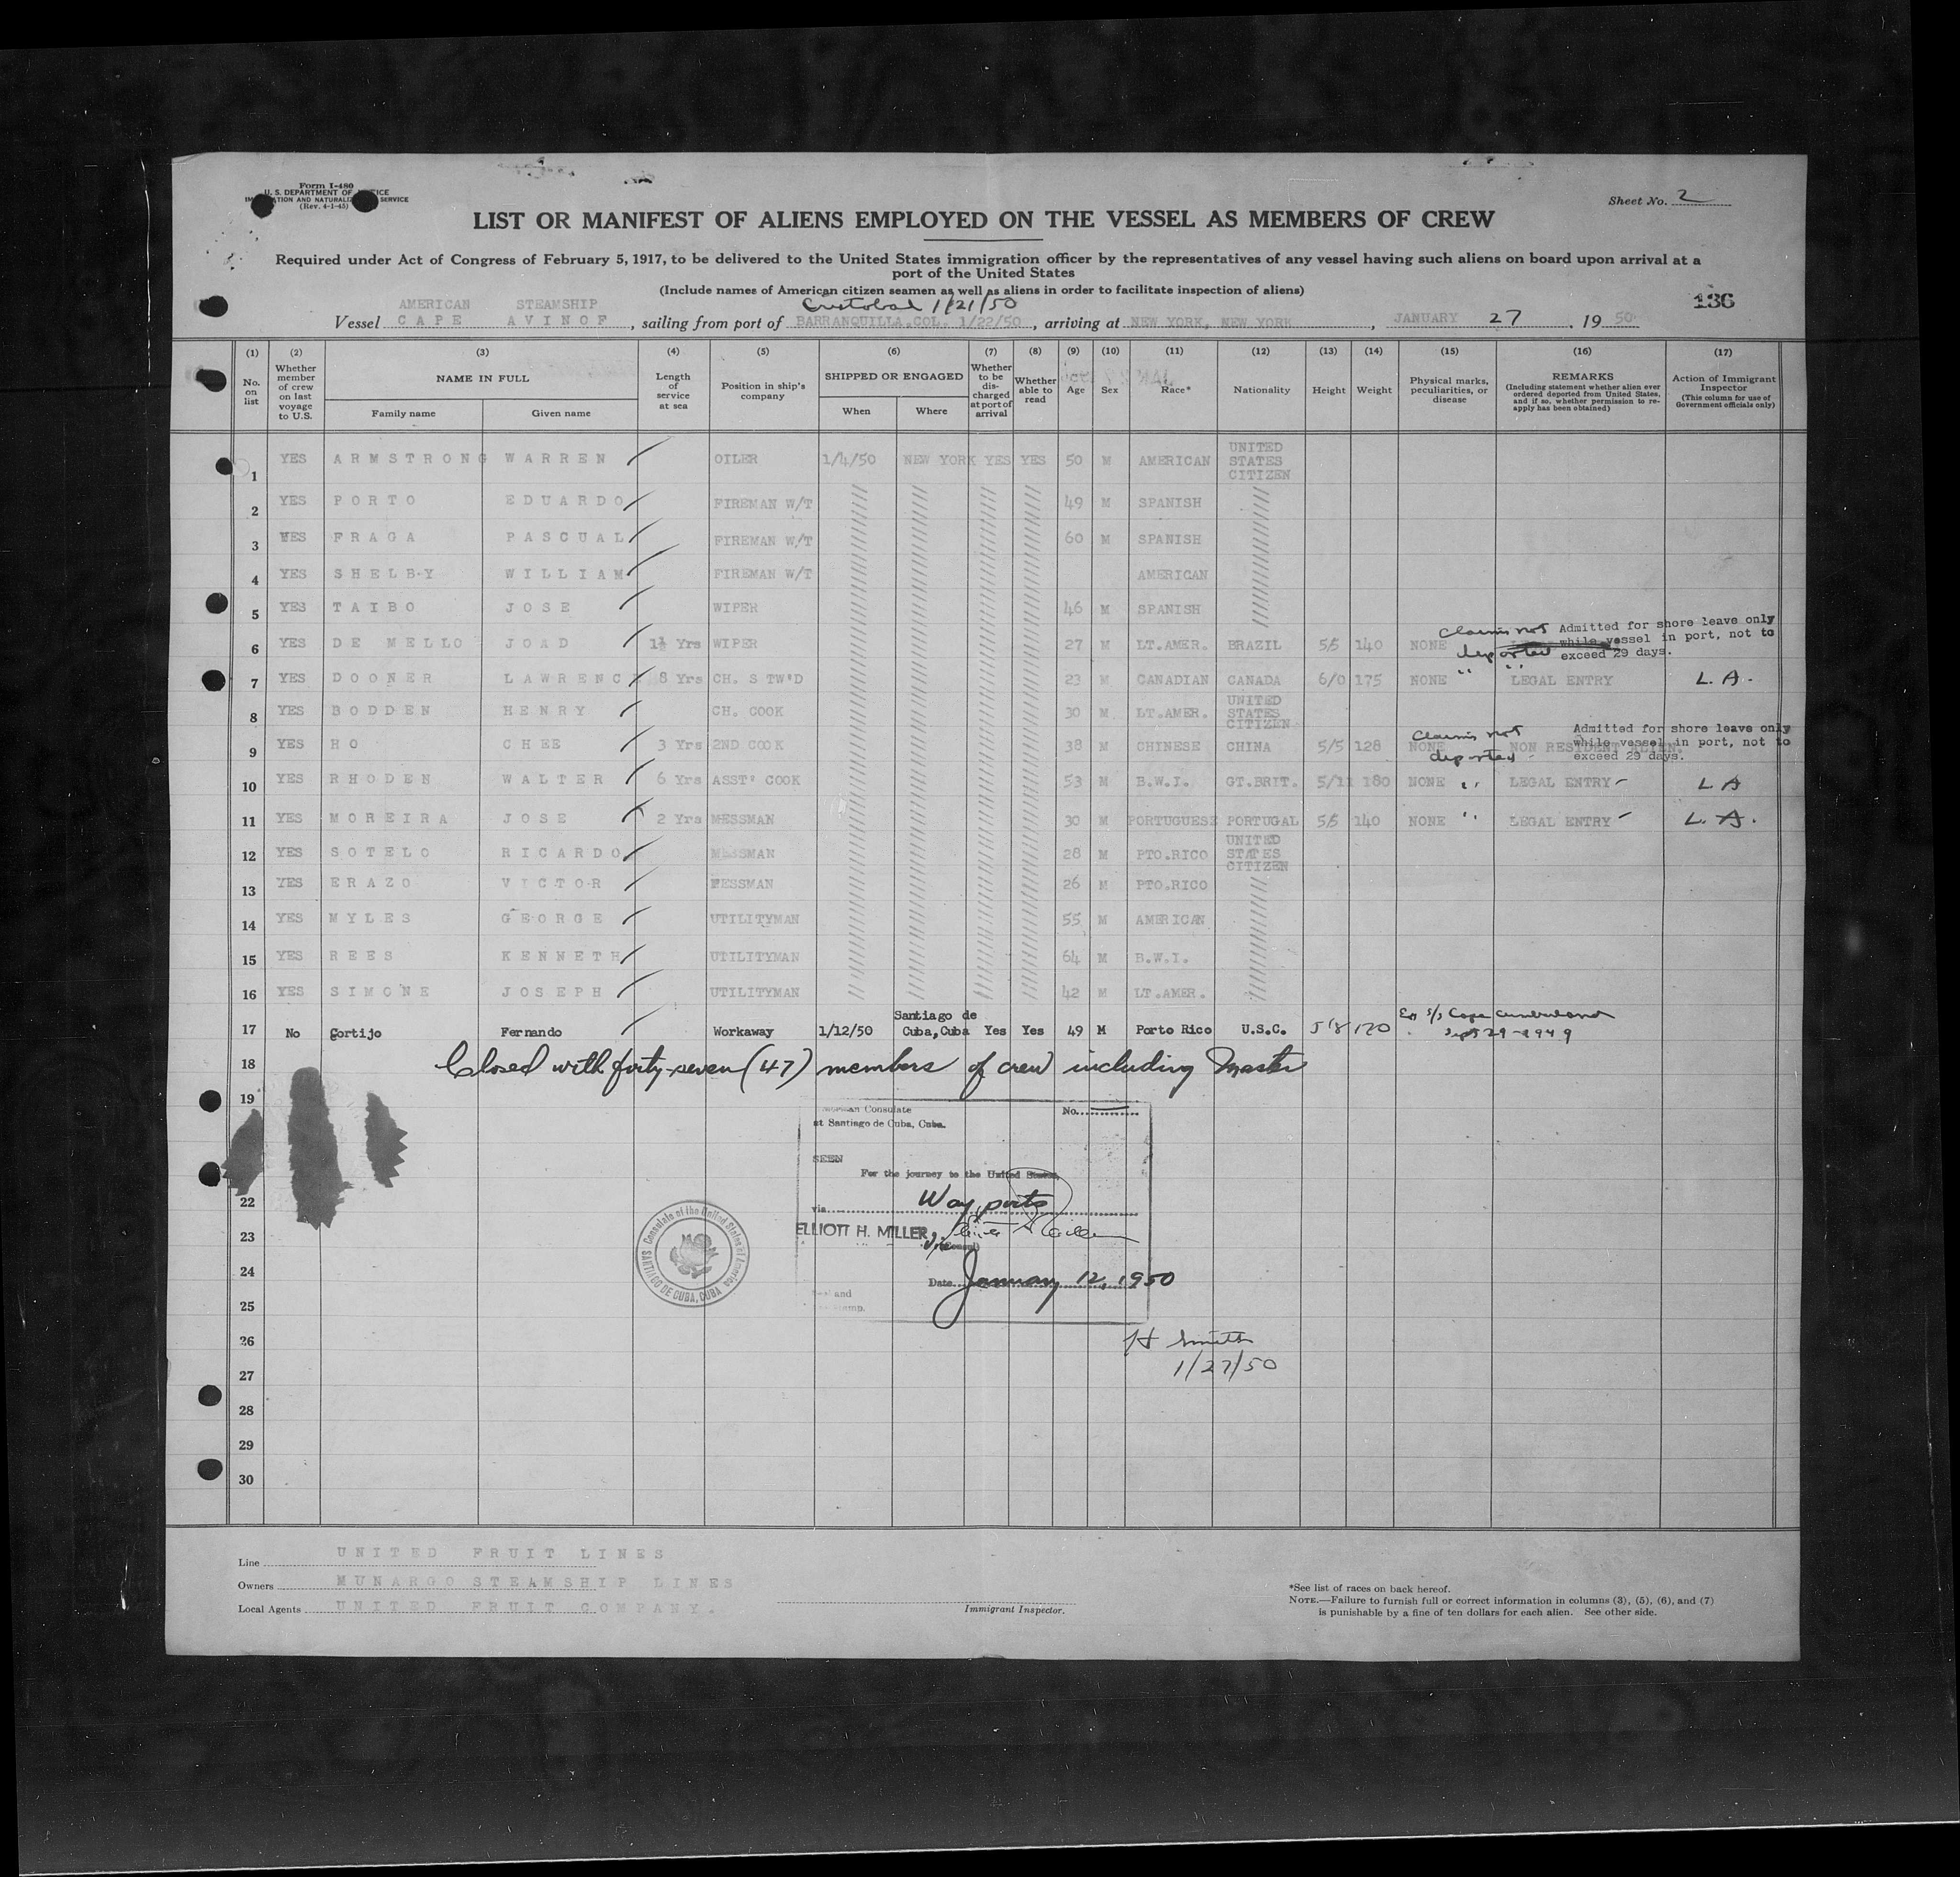 Form I-480
U. S. DEPARTMENT OF JUSTICE
IMMIGRATION AND NATURALIZATION SERVICE
(Rev. 4-1-45)
Sheet No. 2
LIST OR MANIFEST OF ALIENS EMPLOYED ON THE VESSEL AS MEMBERS OF CREW
Required under Act of Congress of February 5, 1917, to be delivered to the United States immigration officer by the representatives of any vessel having such aliens on board upon arrival at a
port of the United States
(Include names of American citizen seamen as well as aliens in order to facilitate inspection of aliens)
136
AMERICAN STEAMSHIP Cristobal 1/21/50
Vessel CAPE AVINOF, sailing from port of BARRANQUILLA.COL. 1/22/50, arriving at NEW YORK, NEW YORK, JANUARY 27, 1950
(1) (2) (3) (4) (5) (6) (7) (8) (9) (10) (11) (12) (13) (14) (15) (16) (17)
No. on list
Whether member of crew on last voyage to U.S.
NAME IN FULL
Family name Given name
Length of service at sea
Position in ship's company
SHIPPED OR ENGAGED
When Where
Whether to be discharged at port of arrival
Whether able to read
Age Sex Race* Nationality Height Weight
Physical marks, peculiarities, or disease
REMARKS
(Including statement whether alien ever ordered deported from United States, and if so, whether permission to reapply has been obtained)
Action of Immigrant Inspector
(This column for use of Government officials only)
1 YES ARMSTRONG WARREN OILER 1/4/50 NEW YORK YES YES 50 M AMERICAN UNITED STATES CITIZEN
2 YES PORTO EDUARDO FIREMAN W/T 49 M SPANISH
3 YES FRAGA PASCUAL FIREMAN W/T 60 M SPANISH
4 YES SHELBY WILLIAM FIREMAN W/T AMERICAN
5 YES TAIBO JOSE WIPER 46 M SPANISH
6 YES DE MELLO JOAD 1½ Yrs WIPER 27 M LT.AMER. BRAZIL 5/5 140 NONE Claims not deported Admitted for shore leave only while vessel in port, not to exceed 29 days.
7 YES DOONER LAWRENC 8 Yrs CH. STW'D 23 M CANADIAN CANADA 6/0 175 NONE " " LEGAL ENTRY L. A.
8 YES BODDEN HENRY CH. COOK 30 M LT.AMER. UNITED STATES CITIZEN
9 YES HO CHEE 3 Yrs 2ND COOK 38 M CHINESE CHINA 5/5 128 NONE Claims not deported NON RESIDENT ALIEN. Admitted for shore leave only while vessel in port, not to exceed 29 days.
10 YES RHODEN WALTER 6 Yrs ASST' COOK 53 M B.W.I. GT.BRIT. 5/11 180 NONE " LEGAL ENTRY L A
11 YES MOREIRA JOSE 2 Yrs MESSMAN 30 M PORTUGUESE PORTUGAL 5/5 140 NONE " LEGAL ENTRY L. A.
12 YES SOTELO RICARDO MESSMAN 28 M PTO.RICO UNITED STATES CITIZEN
13 YES ERAZO VICTOR MESSMAN 26 M PTO.RICO
14 YES MYLES GEORGE UTILITYMAN 55 M AMERICAN
15 YES REES KENNETH UTILITYMAN 64 M B.W.I.
16 YES SIMONE JOSEPH UTILITYMAN 42 M LT.AMER.
17 No Cortijo Fernando Workaway 1/12/50 Santiago de Cuba, Cuba Yes Yes 49 M Porto Rico U.S.C. 5'8 170 Ex S/S Cape Cumberland Sept 29-1949
18 Closed with forty-seven (47) members of crew including Master
19
American Consulate No.
at Santiago de Cuba, Cuba.
SEEN
For the journey to the United States
22 via Way ports
23 ELLIOTT H. MILLER, Vice Consul
24 Date January 12, 1950
25 Seal and
Stamp.
Consulate of the United States of America
SANTIAGO DE CUBA, CUBA
26 H Smith
27 1/27/50
28
29
30
Line UNITED FRUIT LINES
Owners MUNARGO STEAMSHIP LINES
Local Agents UNITED FRUIT COMPANY.
Immigrant Inspector.
*See list of races on back hereof.
NOTE.—Failure to furnish full or correct information in columns (3), (5), (6), and (7)
is punishable by a fine of ten dollars for each alien. See other side.